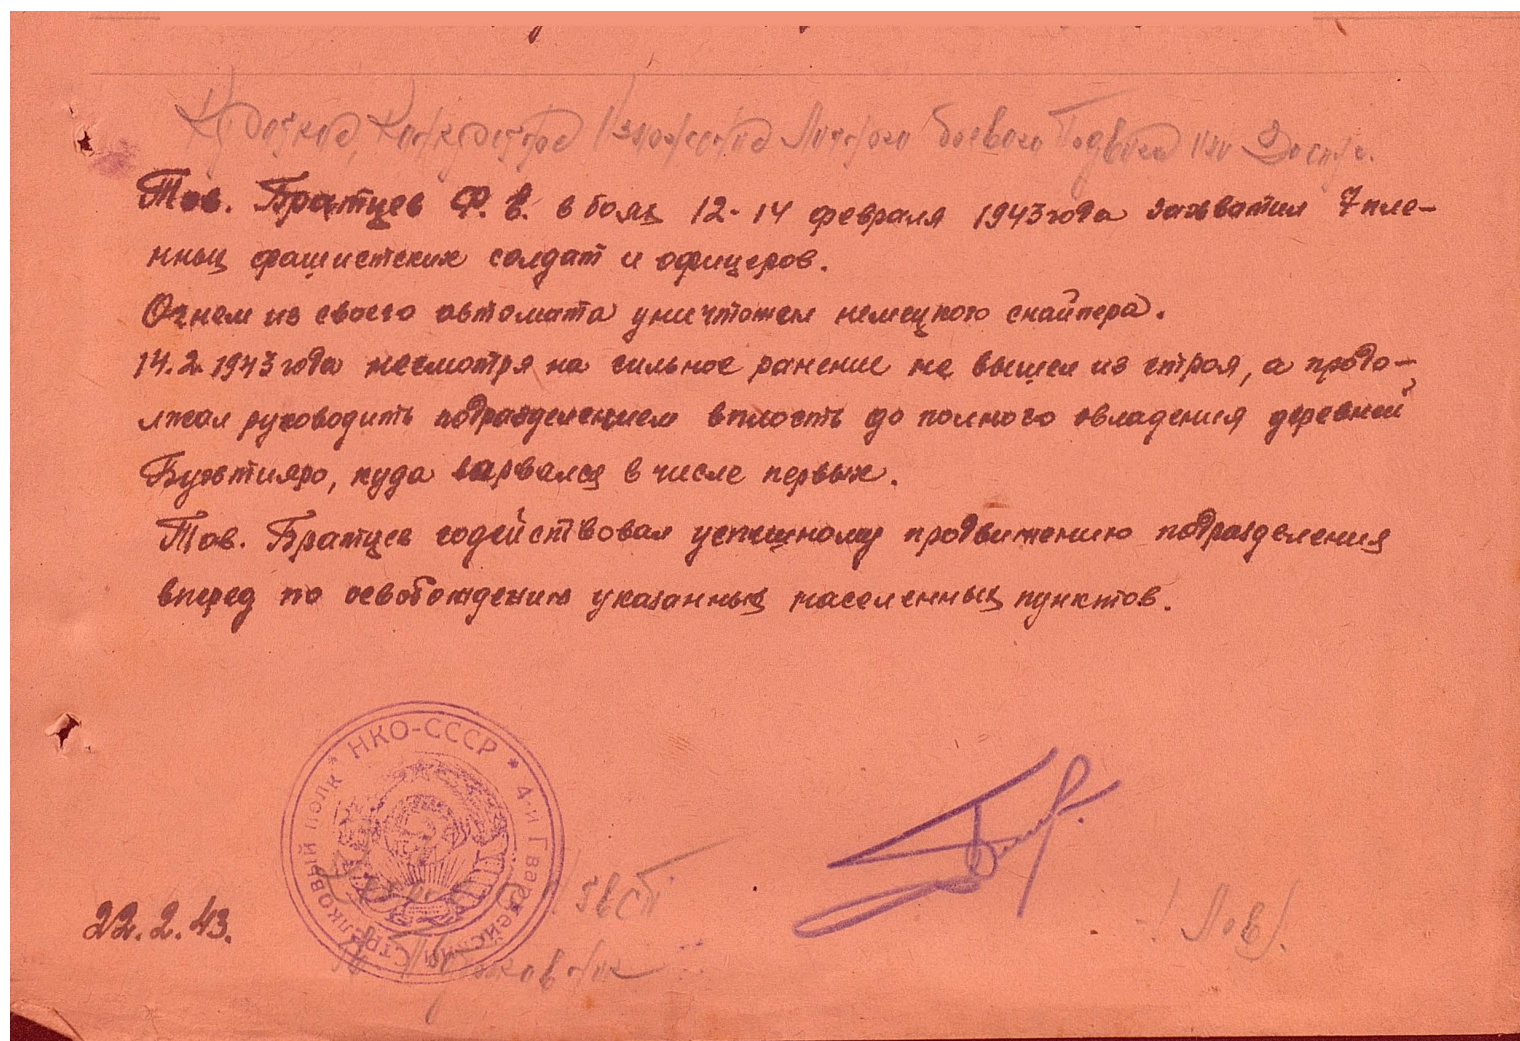 Краткое, конкретное изложение личного боевого подвига или достиг.
Тов. Братцев Ф. В. в боях 12-14 февраля 1943 года захватил 7 пле-
нных фашистских солдат и офицеров.
Огнем из своего автомата уничтожен немецкого снайпера.
14.2.1943 года несмотря на сильное ранение не вышел из строя, а продо-
лжал руководить подразделением вплость до полного овладения деревней
куда варвался в числе первых.
Тов. Братцев содействовал успешному продвижению подразделения
вперед по освобождению указанных населенных пунктов.
НКО-СССР * 4-й Гвардейский Стрелковый полк *
ГвСП
22.2.43.
Подполковник